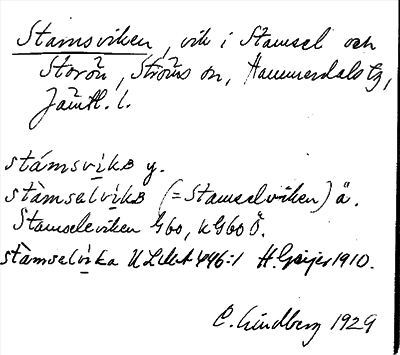 Stamsviken, vik i Stamsel och
Storön, Ströms sn, Hammerdals tg,
Jämtl. l.
stámsvi̱ka y.
stàmsalvi̱ka (= Stamselviken) ä.
Stamseleviken G60, kG60 Ö.
stàmsalvi̱ka ULMA 496:1 H. Geijer 1910.
C. Lindberg 1929